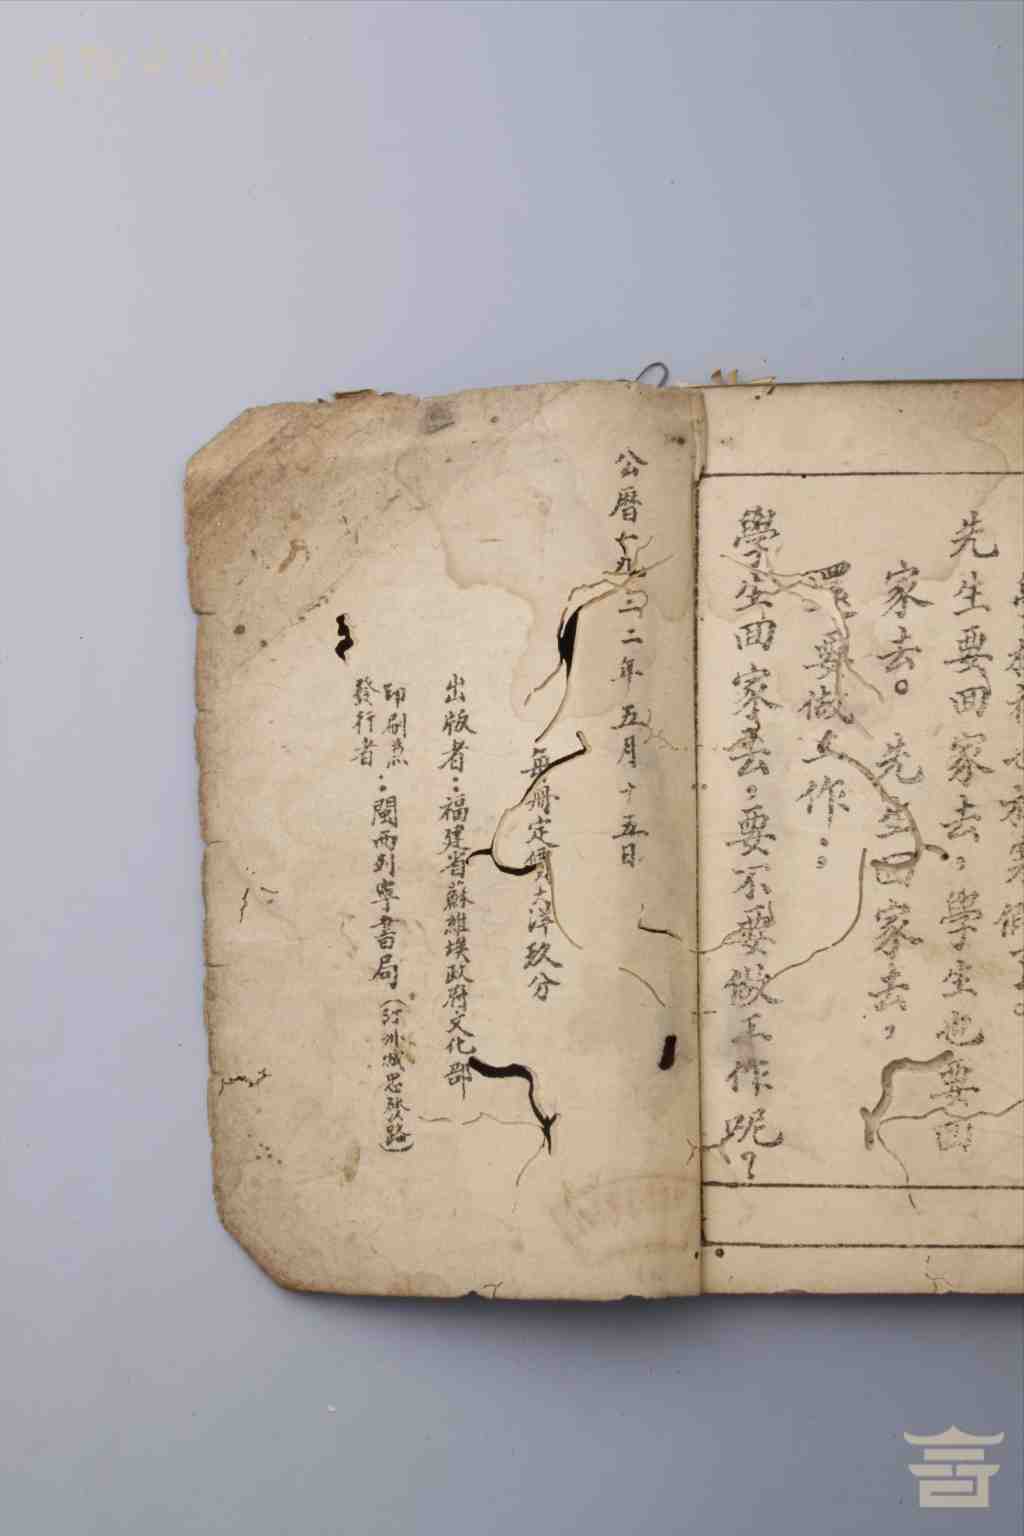 先生要回家去，學生也要回
家去。先生回家去，
還要做工作：
學生回家去，要不要做工作呢？
公曆一九三二年五月十五日
每册定價大洋玖分
出版者：福建省蘇維埃政府文化部
印刷兼
發行者：閩西列寧書局（汀州城思發路）